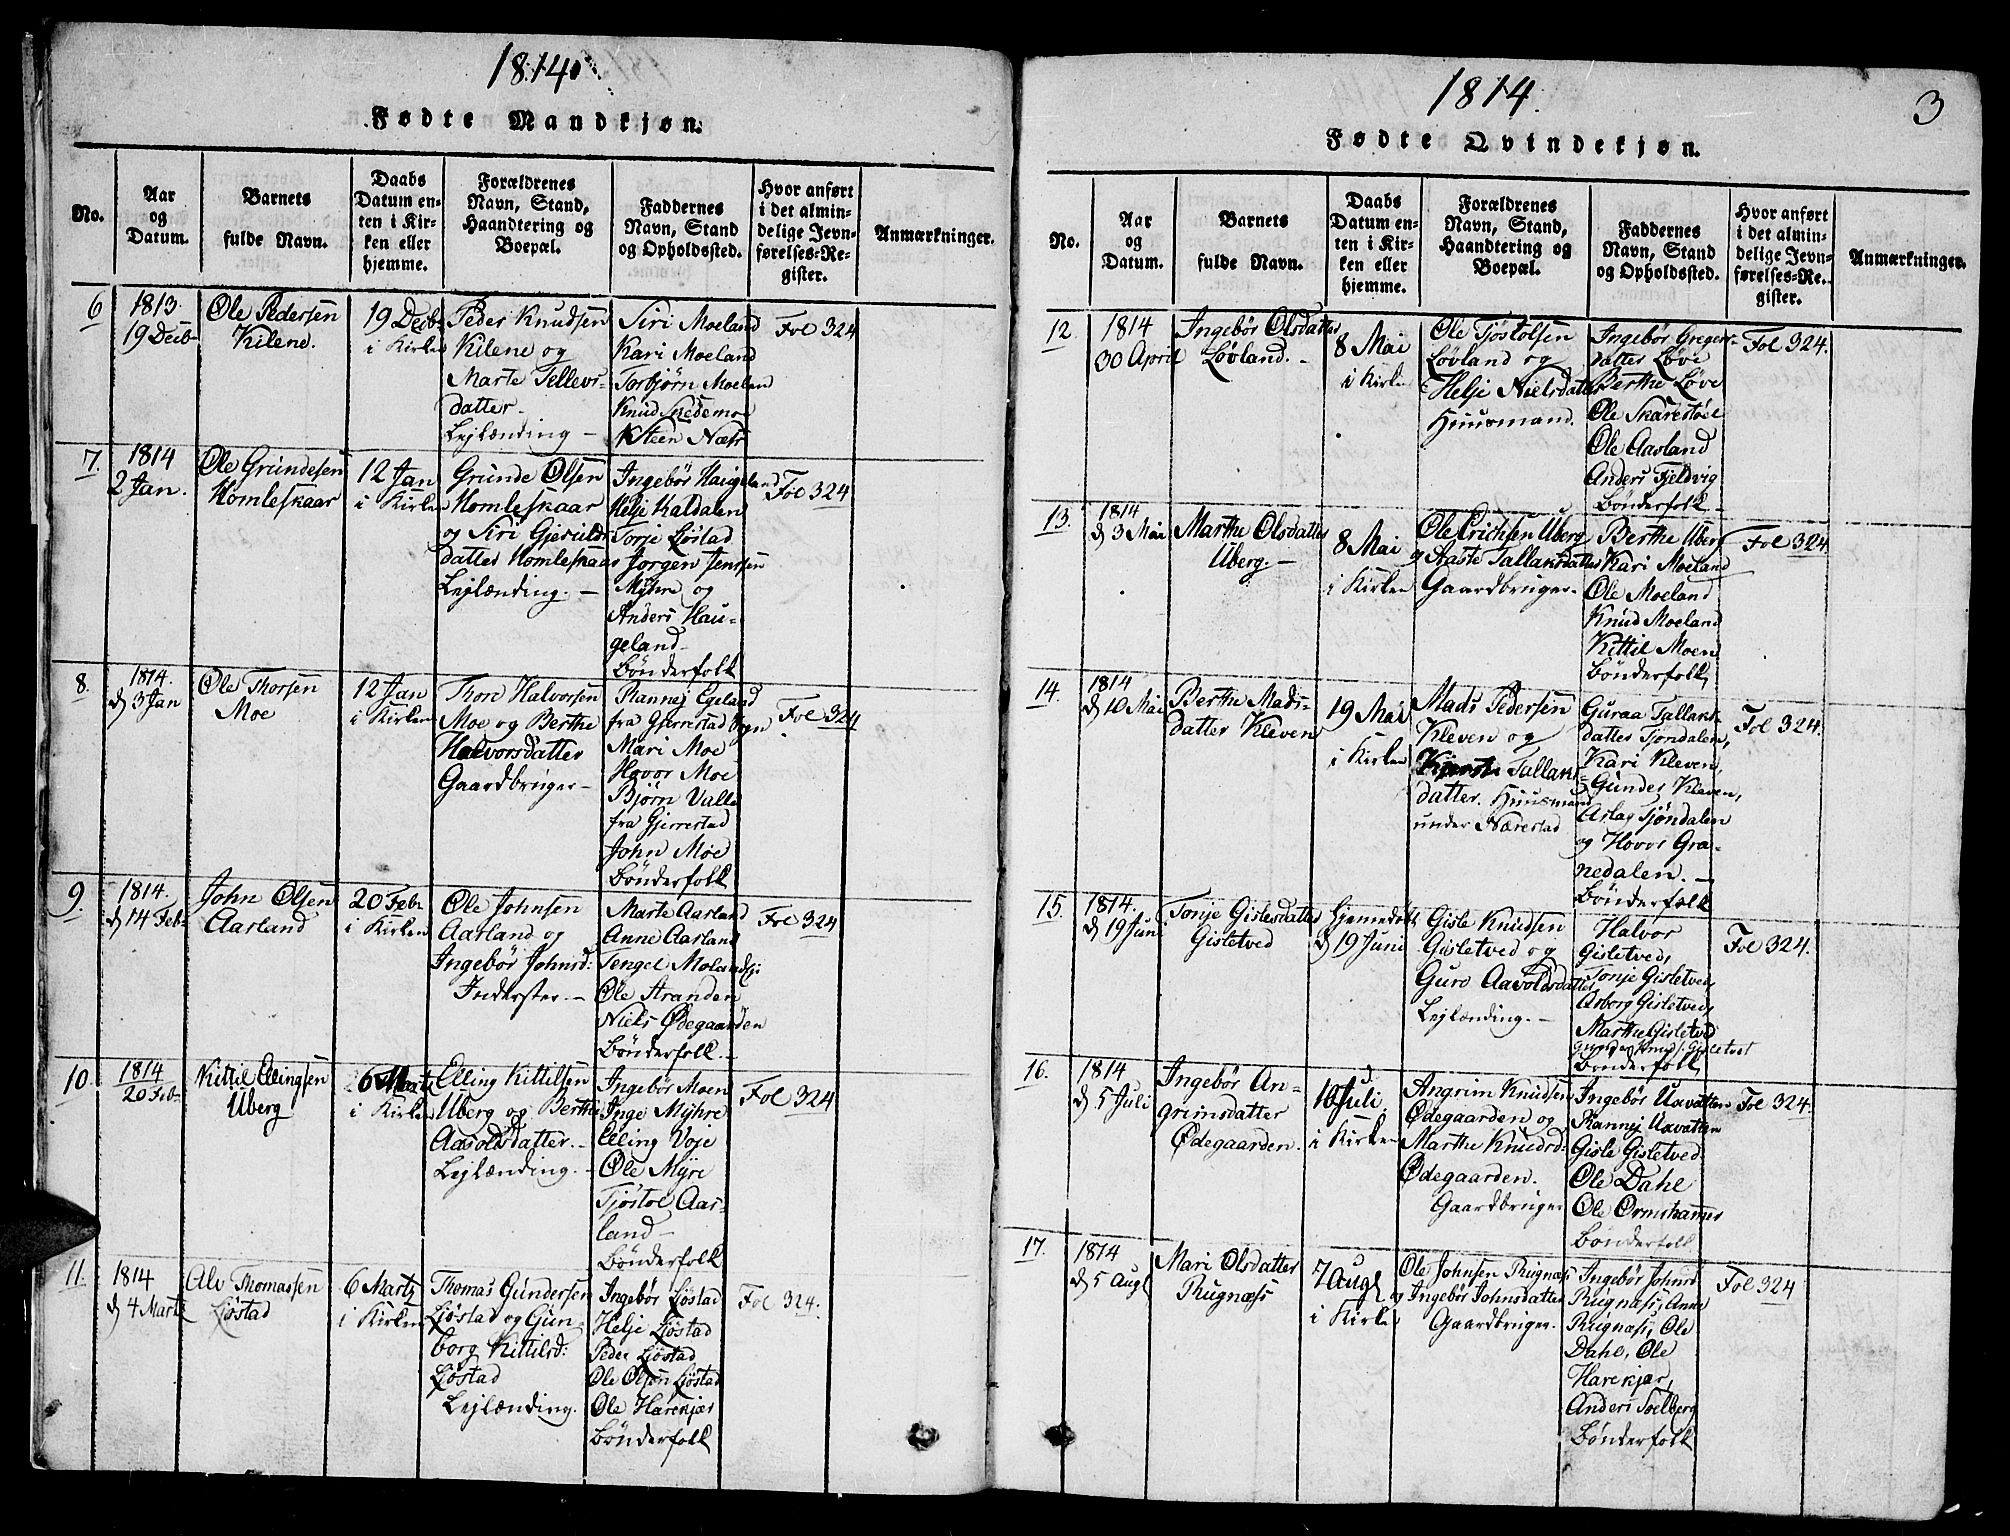 1814
Fødte Mandkjøn.
No.
Aar
og
Datum.
Barnets
fulde Navn.
Daabs
Datum en-
ten i Kir-
ken eller
hjemme.
Forældrenes
Navn, Stand,
Haandtering og
Boepæl.
Faddernes
Navn, Stand
og Opholdssted.
Hvor anført
i det almin-
delige Jevn-
førelses-Re-
gister.
Anmærkninger.
6
1813.
19 Decb
Ole Pedersen
Kilene.
19 Decb
i Kirken
Peder Knudsen
Kilene og
Marte Tellevs-
datter.
Lejlænding —
Siri Moeland
Kari Moeland
Torbjørn Moelan
Knud Snedemoe
Næss
Fol 324
7.
1814
2 Jan.
Ole Grundesen
Homleskaar
12 Jan
i Kirken
Grunde Olsen
Homleskaar
og Siri Gjeruldsdatter
Homleskaar
Lejlænding. —
Ingebør Haugeland
Helje Kaldalen
Torje Ljøstad
Jørgen Jenssen
Myhre og
Anders Hau-
geland
Bønderfolk
Fol 324
8.
1814.
d 3 Jan
Ole Thorsen
Moe
12 Jan
i Kirken
Thore Halvorsen
Moe og Berthe
Halvorsdatter
Gaardbruger —
Rannej Egeland
fra Gjerrestad Sogn
Mari Moe
Hovor Moe
Bjørn Valle
fra Gjerrestad
John Moe
Bønderfolk
Fol 324
9
1814.
d 14 Feb
John Olsen
Aarland
20 Feb
i Kirken
Ole Johnsen
Aarland og
Ingebør Johnsd:
Inderster. —
Marte Aarland
Anne Aarland
Tengel
Ole Stranden
Niels Ødegaarden
Bønderfolk. —
Fol 324
10
1814
20 Feb
Kittil Ellingsen
Uberg
6 Martz
i Kirken
Elling Kittilsen
Uberg og Berthe
Aasoldsdatter. —
Lejlænding. —
Ingebør Moen
Inge Myhre
Elling Voje
Ole Myre
Tjøstol Aas-
land —
Bønderfolk
Fol 324
11.
1814
d 4 Martz
Ale Thomassen
Ljøstad
6 Martz
i Kirken
Thomas Gundersen
Ljøstad og Gun
borg Kittilsd:
Ljøstad
Lejlænding.
Ingebør Ljøstad
Helje Ljøstad
Peder Ljøstad
Ole Olsøn Ljøstad
Ole Harekjær
Bønderfolk
Fol 324.
1814.
3
Fødte Qvindekjøn.
No.
Aar
og
Datum.
Barnets
fulde Navn.
Daabs
Datum en-
ten i Kir-
ken eller
hjemme.
Forældrenes
Navn, Stand,
Haandtering og
Boepæl.
Faddernes
Navn, Stand
og Opholdssted.
Hvor anført
i det almin-
delige Jevn-
førelses-Re-
gister.
Anmærkninger.
12
1814
30 April
Ingebør Olsdatter
Løvland. —
8 Mai
i Kirken
Ole Tjøstolsen
Løvland og
Helje Nielsdatter
Huusmand.
Ingebør Gregers-
datter Løve
Berthe Løve
Ole Skarestøel
Ole Aasland
Anders Fjeldvig
Bønderfolk —
Fol 324.
13.
1814
d 3 Mai
Marthe Olsdatter
Uberg. —
8 Mai
i Kirken
Ole Erichsen Uberg
og Aaste Tallaksdatter
Gaardbruger.
Berthe Uberg
Kari Moeland
Ole Moeland
Knud Moeland
Kittil Moen
Bønderfolk,
Fol 324
14.
1814
d 10 Mai
Berthe Mads-
datter Kleven
19 Mai
i Kirken
Mads Pedersen
Kleven og
Tallaks-
datter. Huusmand
under Nærestad
Guraa Tallaks-
datter Tjøndalen,
Kari Kleven,
Gunder Kleven,
Aslag Tjøndalen
og Hovor Gra-
nedalen. —
Bønderfolk
Fol 324.
15.
1814.
d 19 Juni
Tonje Gislesdatter
Gisletved
Hjemedøbt
d 19 Juni
Gisle Knudsen
Gisletved og
Guro Aavoldsdatter
Lejlænding. —
Halvor
Gisletved,
Tonje Gisletved,
Asborg Gisletved,
Marthe Gisletved
Gunder Knuds: Gisletvet
Bønderfolk,
Fol 324.
16.
1814
d 5 Juli
Ingebør An-
grimsdatter
Ødegaarden.
10 Juli.
i Kirken
Angrim Knudsen
Ødegaarden og
Marthe Knudsd:
Ødegaarden.
Gaardbruger
Ingebør Uavatten
Rannej Uavatten
Gisle Gisletved
Ole Dahl
Ole Ormshammer
Bønderfolk
Fol 324.
17.
1814
d 5 Augl
Mari Olsdatter
Rugnæss
7 Augl
i Kirken
Ole Johnsen Rugnæss
og Ingebør Johnsdatter
Gaardbruger.
Ingebør Johnsd
Rugnæss, Anne
Rugnæss, Ole
Dahl, Ole
Harekjær,
Anders Soelberg
Bønderfolk
Fol 324